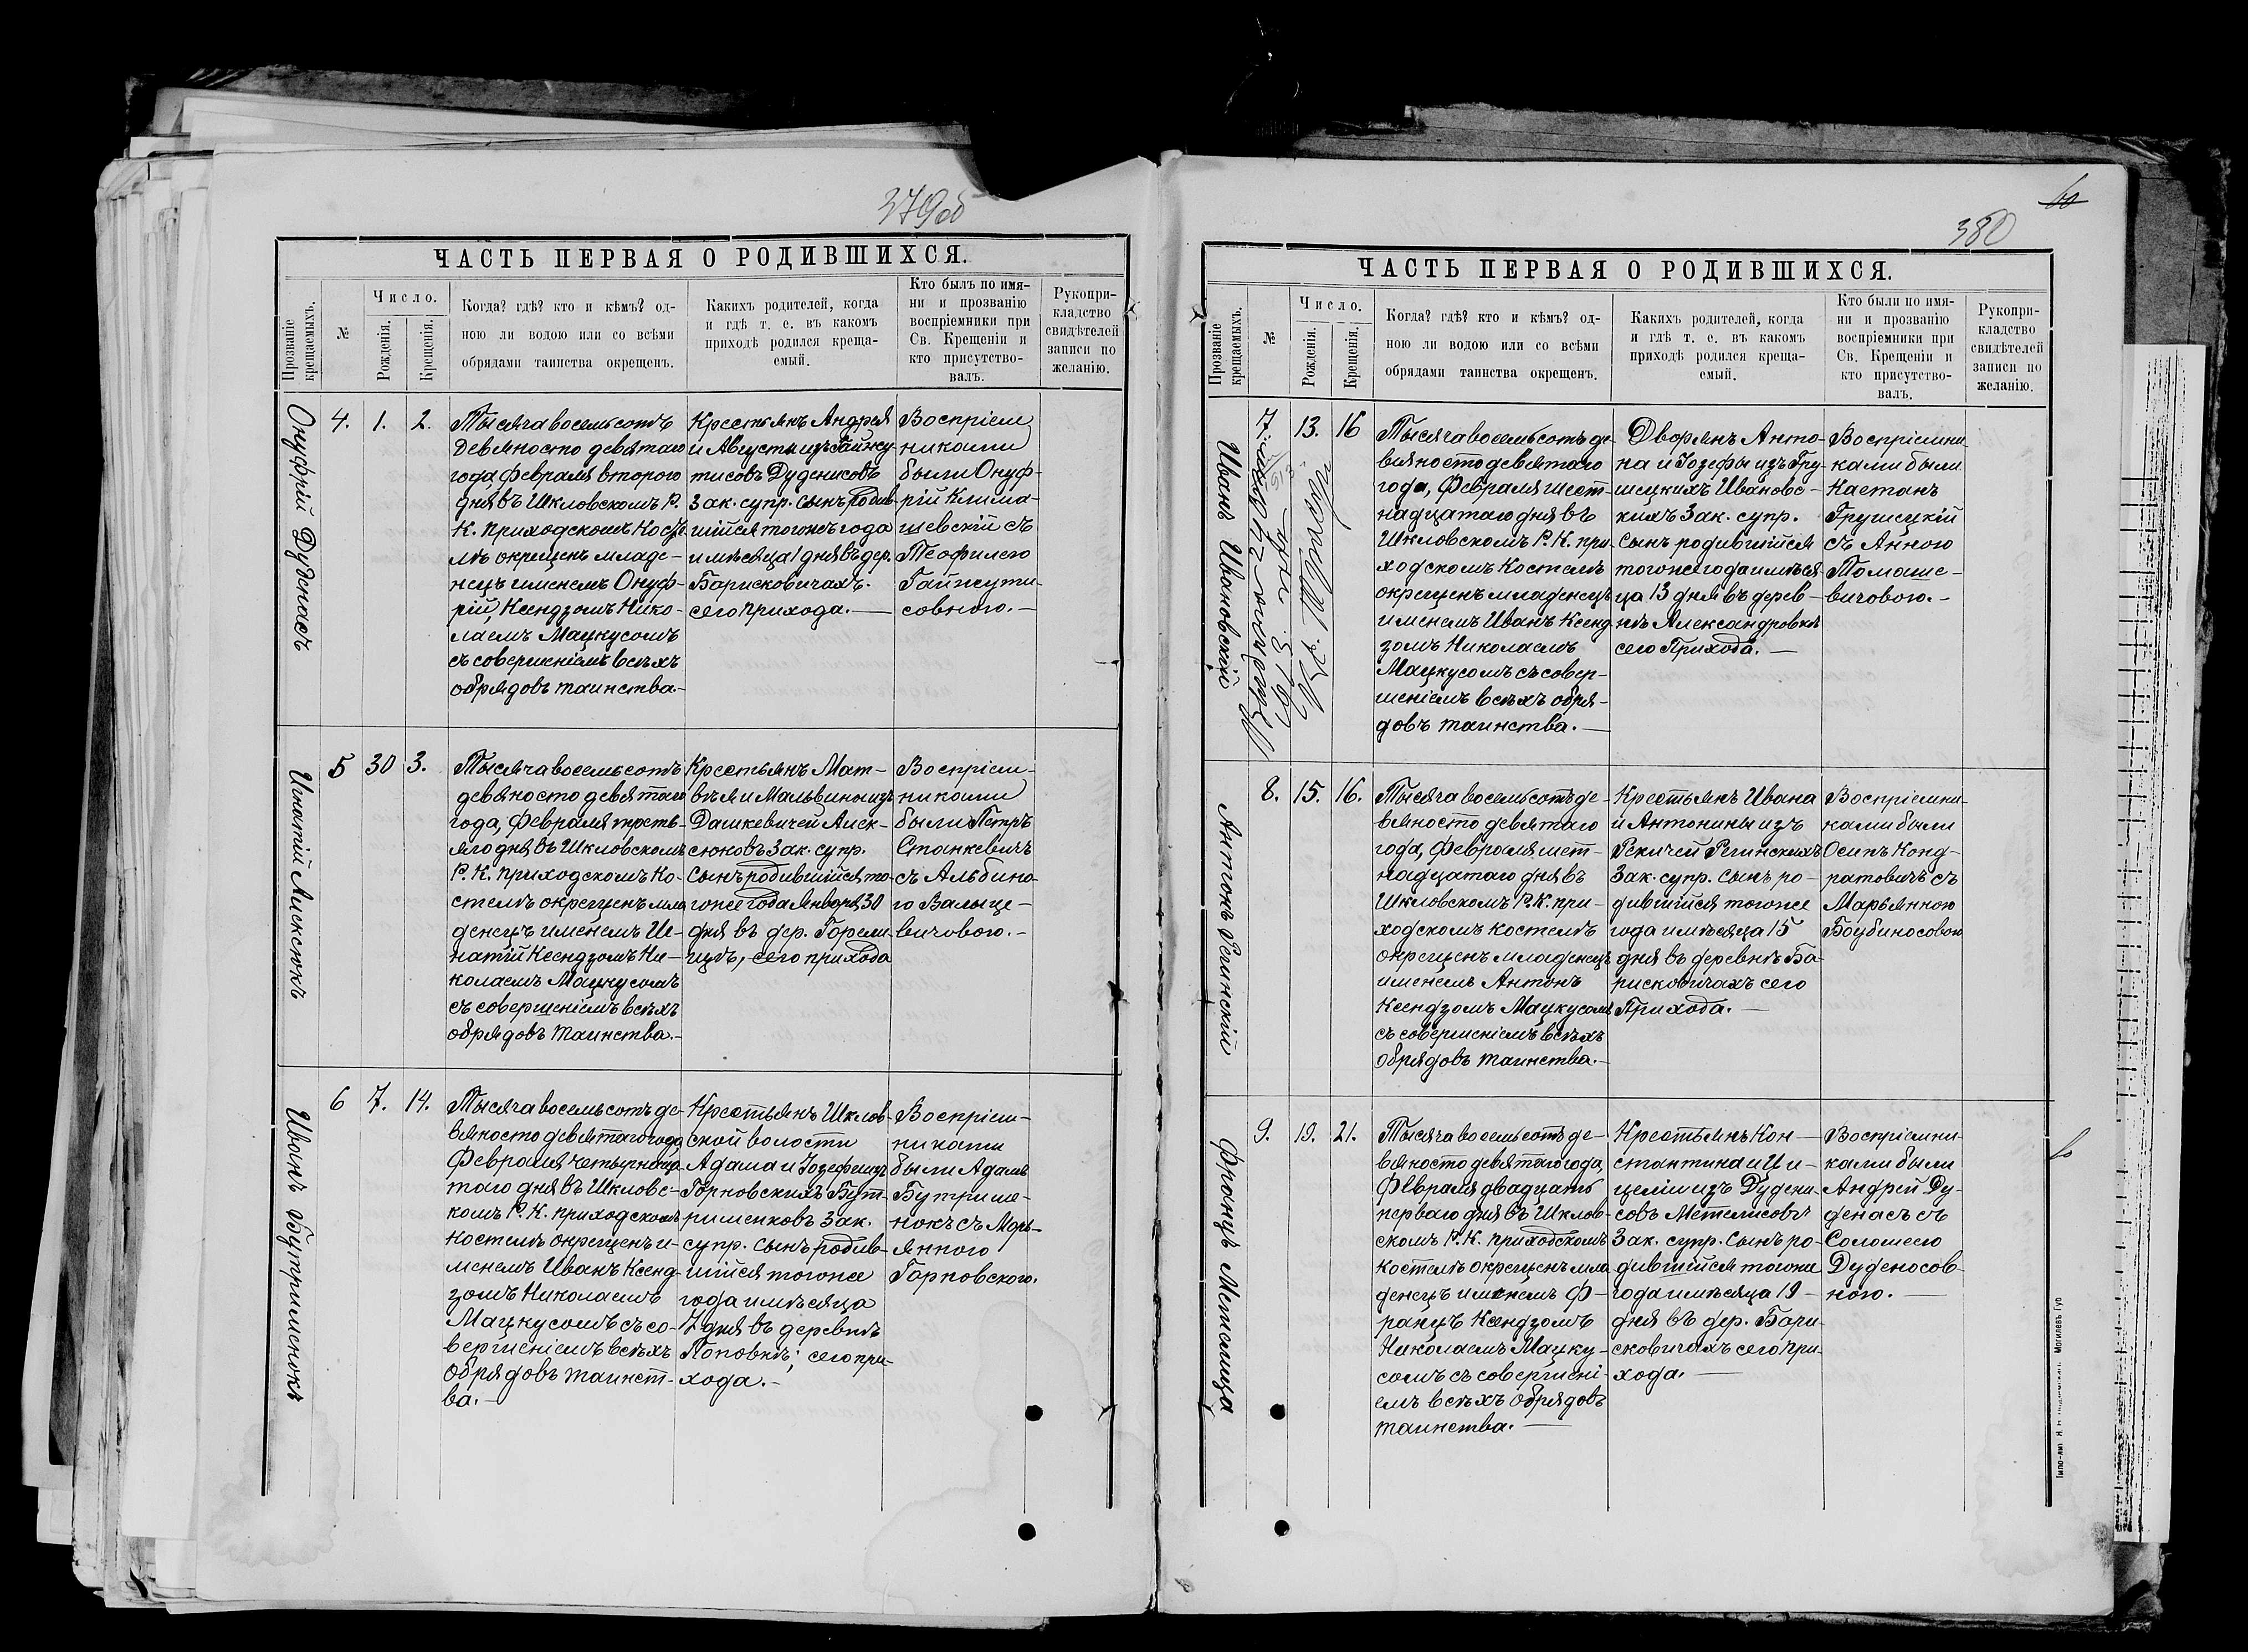 379об
ЧАСТЬ ПЕРВАЯ О РОДИВШИХСЯ.
Прозваніе крещаемыхъ.
№
Число.
Рожденія.
Крещенія.
Когда? гдѣ? кто и кѣмъ? од-
ною ли водою или со всѣми
обрядами таинства окрещенъ.
Какихъ родителей, когда
и гдѣ т. е. въ какомъ
приходѣ родился креща-
емый.
Кто былъ по имя-
ни и прозванію
воспріемники при
Св. Крещеніи и
кто присутство-
валъ.
Рукопри-
кладство
свидѣтелей
записи по
желанію.
Онуфрій Дуденасъ
4.
1.
2.
Тысяча восемьсотъ
девяносто девятаго
года, Февраля второго
дня въ Шкловскомъ Р.
К. приходскомъ Косте
лѣ окрещенъ младе-
нецъ именемъ Онуф-
рій, Ксендзомъ Нико-
лаемъ Мацкусомъ
съ совершеніемъ всѣхъ
обрядовъ таинства.-
Крестьянъ Андрея
и Августы изъ Гайжу
тисовъ Дуденисовъ
Зак. супр. сынъ родив-
шійся тогожъ года
и мѣсяца 1 дня въ дер.
Барисковичахъ.
сего прихода.—
Воспріем
никами
были Онуф-
рій Клима-
шевскій съ
Теофилею
Гайжути-
совною.-
Игнатій Алексюкъ
5
30
3.
Тысяча восемьсотъ
девяносто девятаго
года, Февраля треть-
яго дня въ Шкловскомъ
Р. К. приходскомъ Ко-
стелѣ окрещенъ мла
денецъ именемъ Иг-
натій Ксендзомъ Ни-
колаемъ Мацкусомъ
съ совершеніемъ всѣхъ
обрядовъ таинства.-
Крестьянъ Мат-
вѣя и Мальвины изъ
Дашкевичей Алек-
сюковъ Зак. супр.
сынъ родившійся то-
гоже года Января 30
дня въ дер. Горели-
цѣ, сего прихода
Воспріем-
никами
были Петръ
Станкевичъ
съ Альбино-
ю Валыце-
вичовою.-
Иванъ Бутрименокъ
6
7.
14.
Тысяча восемьсотъ де-
вяносто девятаго года
Февраля четырнадца-
таго дня въ Шкловс-
комъ Р. К. приходскомъ
костелѣ окрещенъ и-
менемъ Иванъ Ксенд-
зомъ Николаемъ
Мацкусомъ съ со-
вершеніемъ всѣхъ
обрядовъ таинст-
ва.-
Крестьянъ Шклов-
ской волости
Адама и Іозефы изъ
Горновскихъ Бут-
рименковъ Зак.
супр. сынъ родив-
шійся тогоже
года и мѣсяца
7 дня въ деревнѣ
Поповкѣ; сего при-
хода.-
Воспріем-
никами
были Адамъ
Бутриме-
нокъ съ Марь-
янною
Горновскою.
380
60
ЧАСТЬ ПЕРВАЯ О РОДИВШИХСЯ.
Прозваніе крещаемыхъ.
№
Число.
Рожденія.
Крещенія.
Когда? гдѣ? кто и кѣмъ? од-
ною ли водою или со всѣми
обрядами таинства окрещенъ.
Какихъ родителей, когда
и гдѣ т. е. въ какомъ
приходѣ родился креща-
емый.
Кто были по имя-
ни и прозванію
воспріемники при
Св. Крещеніи и
кто присутство-
валъ.
Рукопри-
кладство
свидѣтелей
записи по
желанію.
Иванъ Ивановскій
7.
13.
16
Тысяча восемьсотъ де-
вяносто девятаго
года, Февраля шест-
надцатаго дня въ
Шкловскомъ Р. К. при-
ходскомъ Костелѣ
окрещенъ младенецъ
именемъ Иванъ Ксенд
зомъ Николаемъ
Мацкусомъ съ совер-
шеніемъ всѣхъ обря-
довъ таинства.—
Дворянъ Анто-
на и Іозефы изъ Гру-
шецкихъ Ивановс-
кихъ Зак. супр.
Сынъ родившійся
тогоже года и мѣся
ца 13 дня въ дерев-
нѣ Александровкѣ
сего Прихода.—
Воспріемни
ками были
Каетанъ
Грушецкій
съ Анною
Томаше-
вичовою.-
Антонъ Регинскій
8.
15.
16.
Тысяча восемьсотъ де-
вяносто девятаго
года, Февраля шест-
надцатаго дня въ
Шкловскомъ Р. К. при-
ходскомъ костелѣ
окрещенъ младенецъ
именемъ Антонъ
Ксендзомъ Мацкусомъ
съ совершеніемъ всѣхъ
обрядовъ таинства.-
Крестьянъ Ивана
и Антонины изъ
Рекичей Регинскихъ
Зак. супр. сынъ ро-
дившійся тогоже
года и мѣсяца 15
дня въ деревнѣ Ба-
рисковичахъ сего
Прихода.—
Воспріемни-
ками были
Осипъ Конд-
ратовичъ съ
Марьянною
Боубиносовою
Францъ Метелица
9.
19.
21.
Тысяча восемьсотъ де-
вяносто девятаго года,
Февраля двадцать
перваго дня въ Шклов-
скомъ Р. К. приходскомъ
костелѣ окрещенъ мла
денецъ именемъ Ф-
ранцъ Ксендзомъ
Николаемъ Мацку-
сомъ съ совершені-
емъ всѣхъ обрядовъ
таинства.—
Крестьянъ Кон-
стантина и Це-
целіи изъ Дудени-
совъ Метелисовъ
Зак. супр. Сынъ ро-
дившійся тогоже
года и мѣсяца 19-
дня въ дер. Бари-
сковичахъ сего При-
хода.—
Воспріемни-
ками были
Андрей Ду-
денасъ съ
Соломеею
Дуденосов-
ною.—